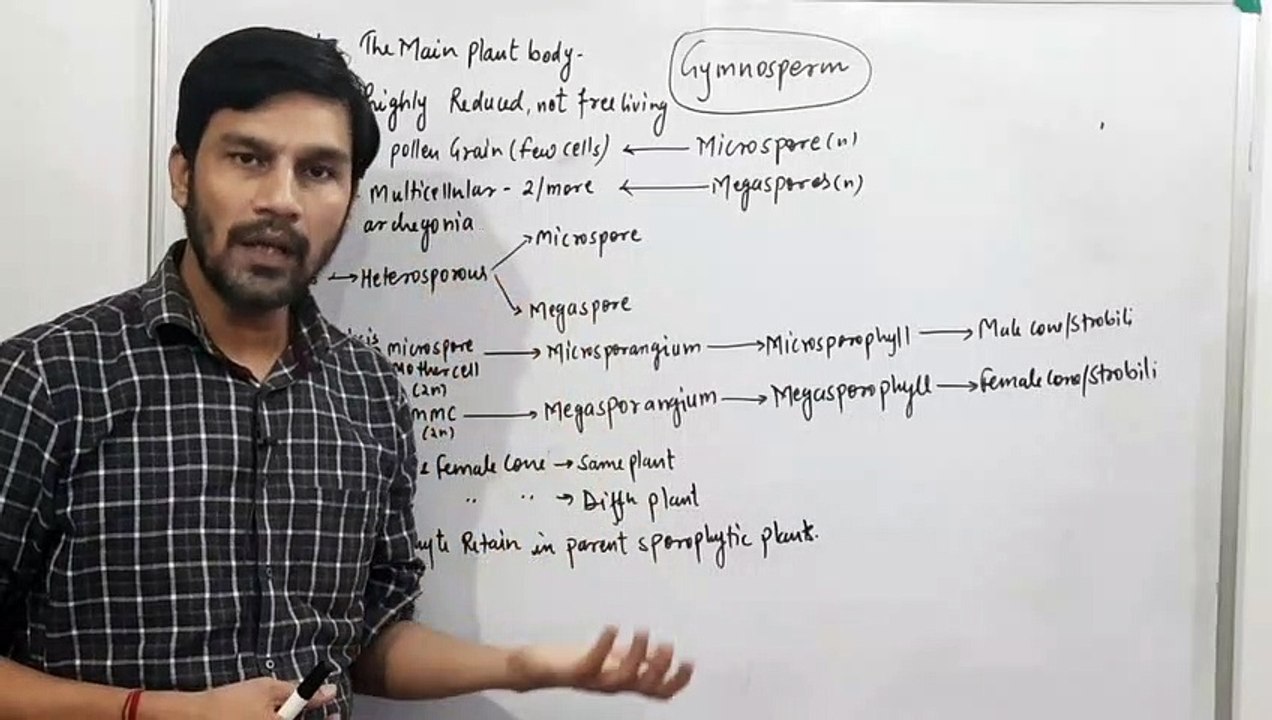 The Main plant body-
Gymnosperm
highly Reduced, not free living
pollen Grain (few cells) ← Microspore (n)
Multicellular - 2/more ← Megaspores (n)
archegonia
→ Heterosporous → Microspore
→ Megaspore
microspore → Microsporangium → Microsporophyll → Male cone/Strobili
Mother cell
(2n)
MMC → Megasporangium → Megasporophyll → female cone/Strobili
(2n)
female cone → Same plant
" " → Diffn plant
Retain in parent sporophytic plants.